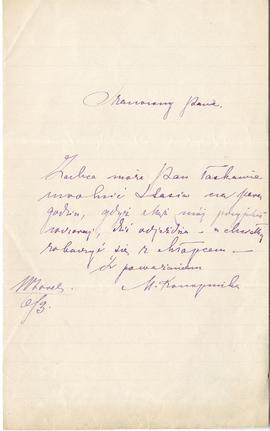 Szanowny Panie.
Zechce może Pan łaskawie
uwolnić Stasia na parę
godzin, gdyż mój
dziś odjeżdża – a chciałby
zobaczyć się z chłopcem –
Z poważaniem
M. Konopnicka
Wtorek
6/3.